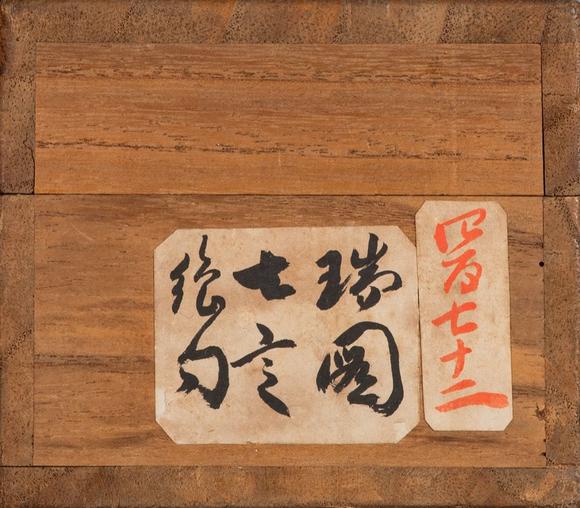 四百七十二
瑞図
七言
絶句